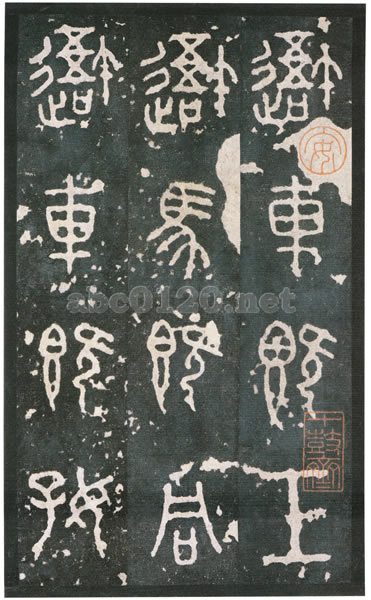 吾車既工
吾馬既同
吾車既好
安
十鼓齋
abc0120.net